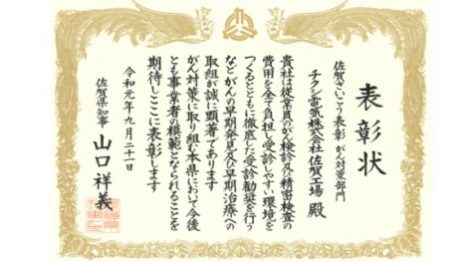 表彰状
佐賀さいこう表彰 がん対策部門
チクシ電気株式会社佐賀工場 殿
貴社は従業員のがん検診及び精密検査の
費用を全て負担し受診しやすい環境を
つくるとともに徹底した受診勧奨を行う
などがんの早期発見及び早期治療への
取組が誠に顕著であります
がん対策に取り組む本県において今後
とも事業者の模範となられることを
期待しここに表彰します
令和元年九月二十一日
佐賀県知事 山口祥義